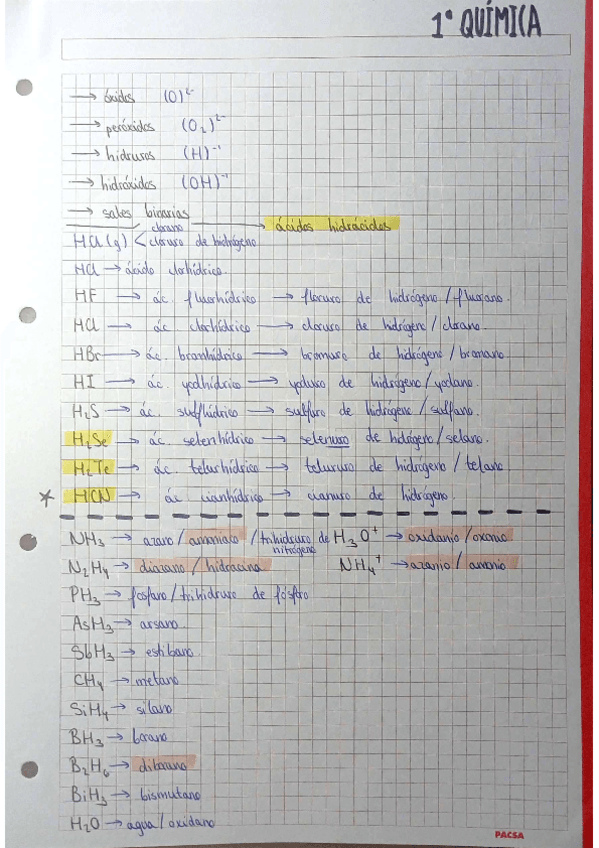 1º QUÍMICA
→ óxidos (O)²⁻
→ peróxidos (O₂)²⁻
→ hidruros (H)⁻¹
→ hidróxidos (OH)⁻¹
→ sales binarias
→ ácidos hidrácidos
HCl (g) < clorano
cloruro de hidrógeno
HCl → ácido clorhídrico.
HF → ác. fluorhídrico → floruro de hidrógeno / fluorano.
HCl → ác. clorhídrico → cloruro de hidrógeno / clorano.
HBr → ác. bromhídrico → bromuro de hidrógeno / bromano.
HI → ác. yodhídrico → yoduro de hidrógeno / yodano.
H₂S → ác. sulfhídrico → sulfuro de hidrógeno / sulfano.
H₂Se → ác. selenhídrico → selenuro de hidrógeno / selano.
H₂Te → ác. telurhídrico → telururo de hidrógeno / telano
* HCN → ác. cianhídrico → cianuro de hidrógeno.
NH₃ → azano / amoniaco / trihidruro de nitrógeno
H₃O⁺ → oxidanio / oxonio
N₂H₄ → diazano / hidracina
NH₄⁺ → azanio / amonio
PH₃ → fosfano / trihidruro de fósforo
AsH₃ → arsano.
SbH₃ → estibano.
CH₄ → metano
SiH₄ → silano
BH₃ → borano
B₂H₆ → diborano
BiH₃ → bismutano
H₂O → agua / oxidano
PACSA